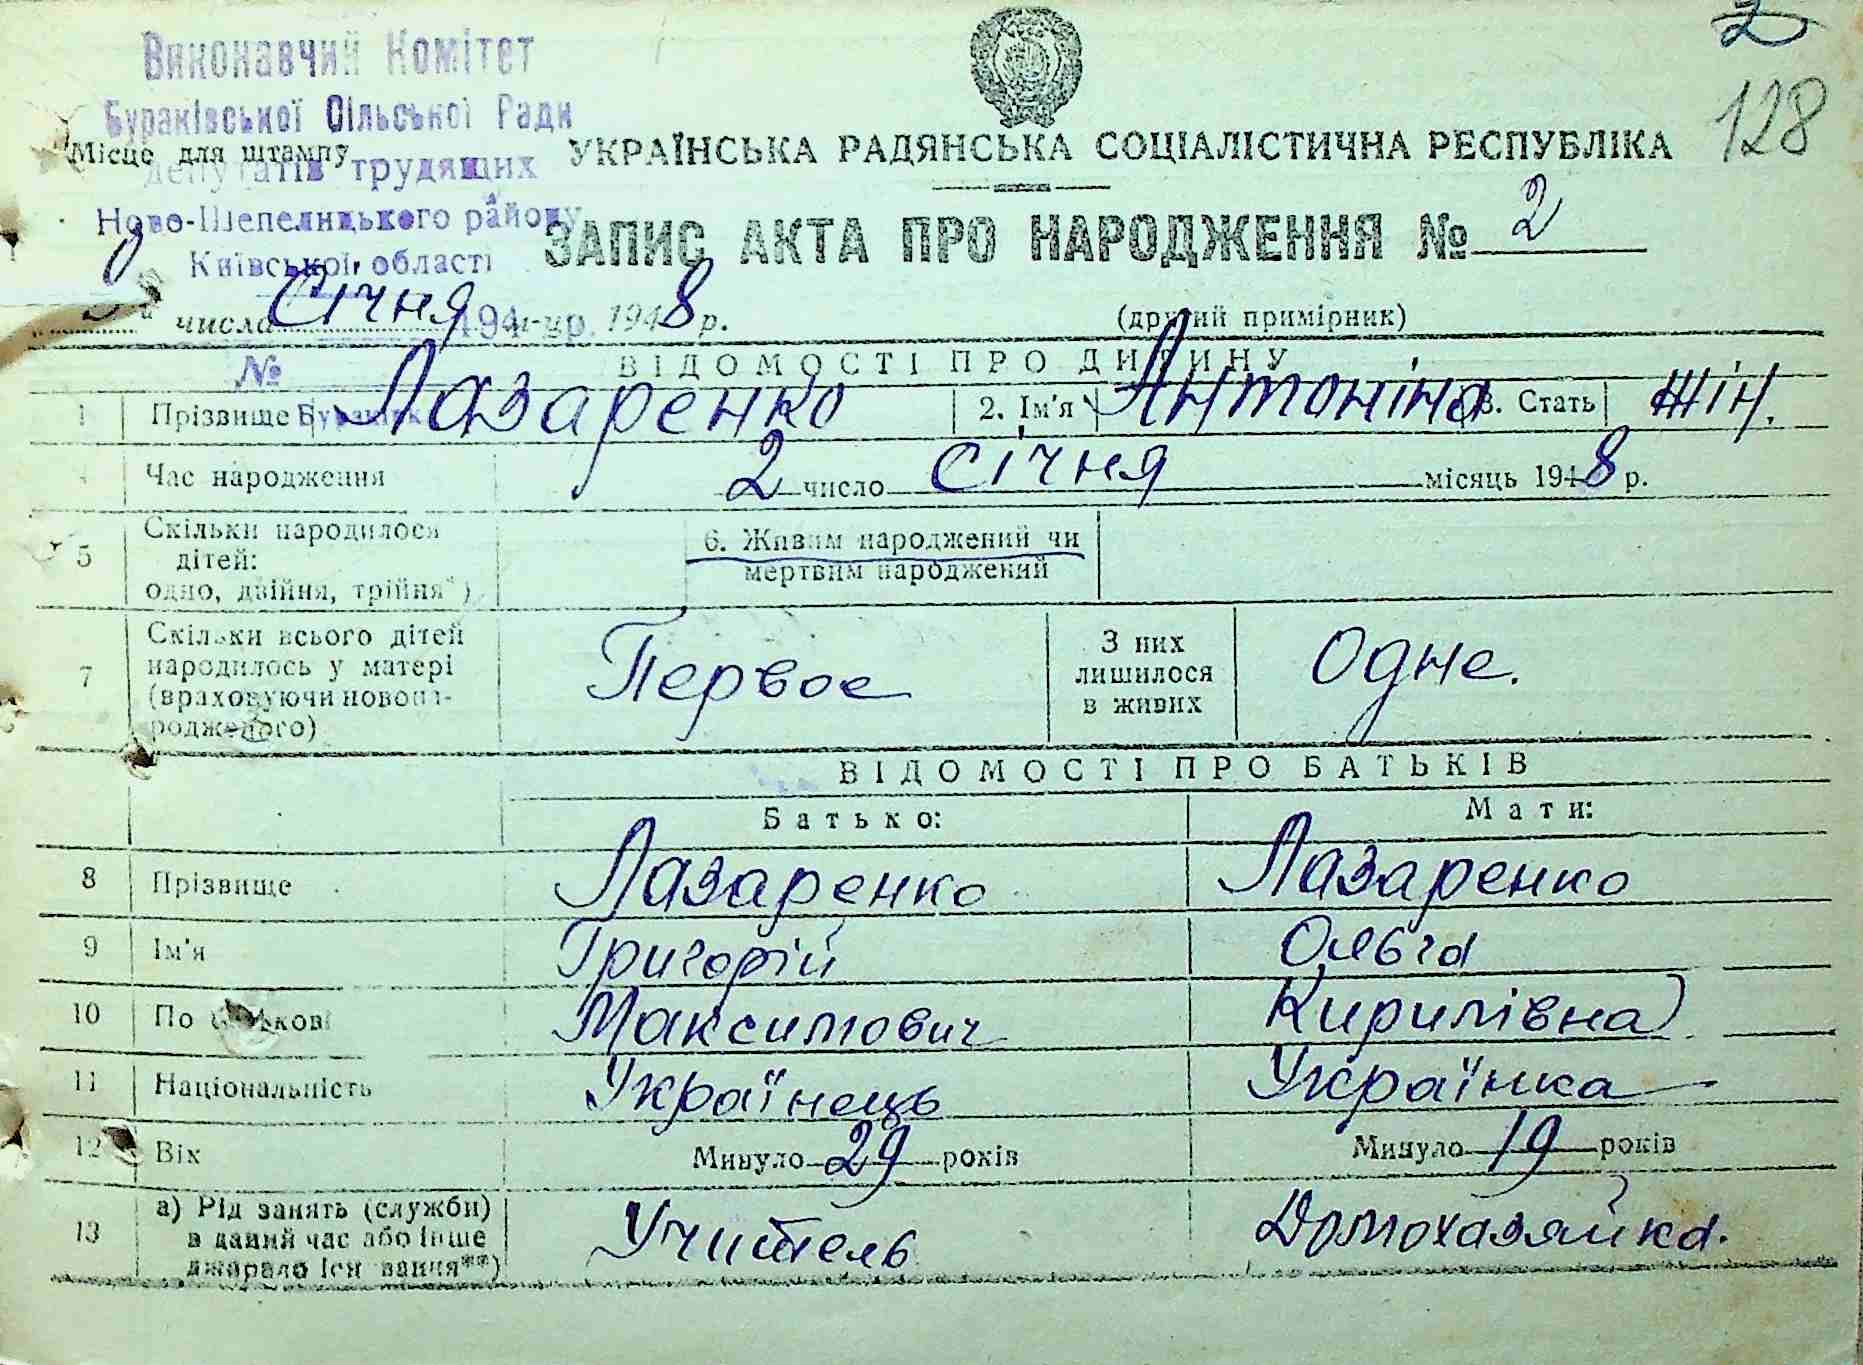 2
128
Виконавчий Комітет
Бураківської Сільської Ради
Місце для штампу
депутатів трудящих
Ново-Шепелицького району
Київської області
УКРАЇНСЬКА РАДЯНСЬКА СОЦІАЛІСТИЧНА РЕСПУБЛІКА
ЗАПИС АКТА ПРО НАРОДЖЕННЯ № 2
числа Січня 1948 р.
194
(другий примірник)
№
ВІДОМОСТІ ПРО ДИТИНУ
1 Прізвище Лазаренко 2. Ім'я Антоніна 3. Стать жін.
Час народження 2 число Січня місяць 1948 р.
5 Скільки народилося дітей: одно, двійня, трійня*)
6. Живим народжений чи мертвим народжений
7 Скільки всього дітей народилось у матері (враховуючи новонародженого) Первое
З них лишилося в живих Одне.
ВІДОМОСТІ ПРО БАТЬКІВ
Батько: Мати:
8 Прізвище Лазаренко Лазаренко
9 Ім'я Григорій Ольга
10 По батькові Максимович Кирилівна
11 Національність Українець Українка
12 Вік Минуло 29 років Минуло 19 років
13 а) Рід занять (служби) в даний час або інше джерело існування**) Учитель Домохазяйка.